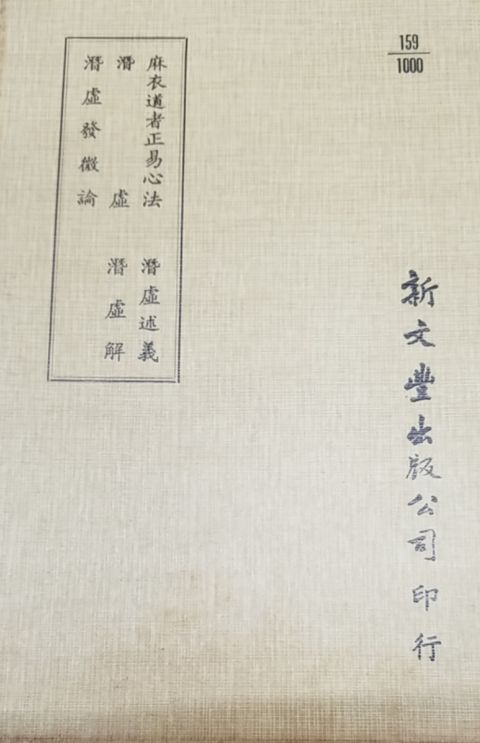 159
1000
麻衣道者正易心法
潛虛述義
潛虛
潛虛解
潛虛發微論
新文豐出版公司印行